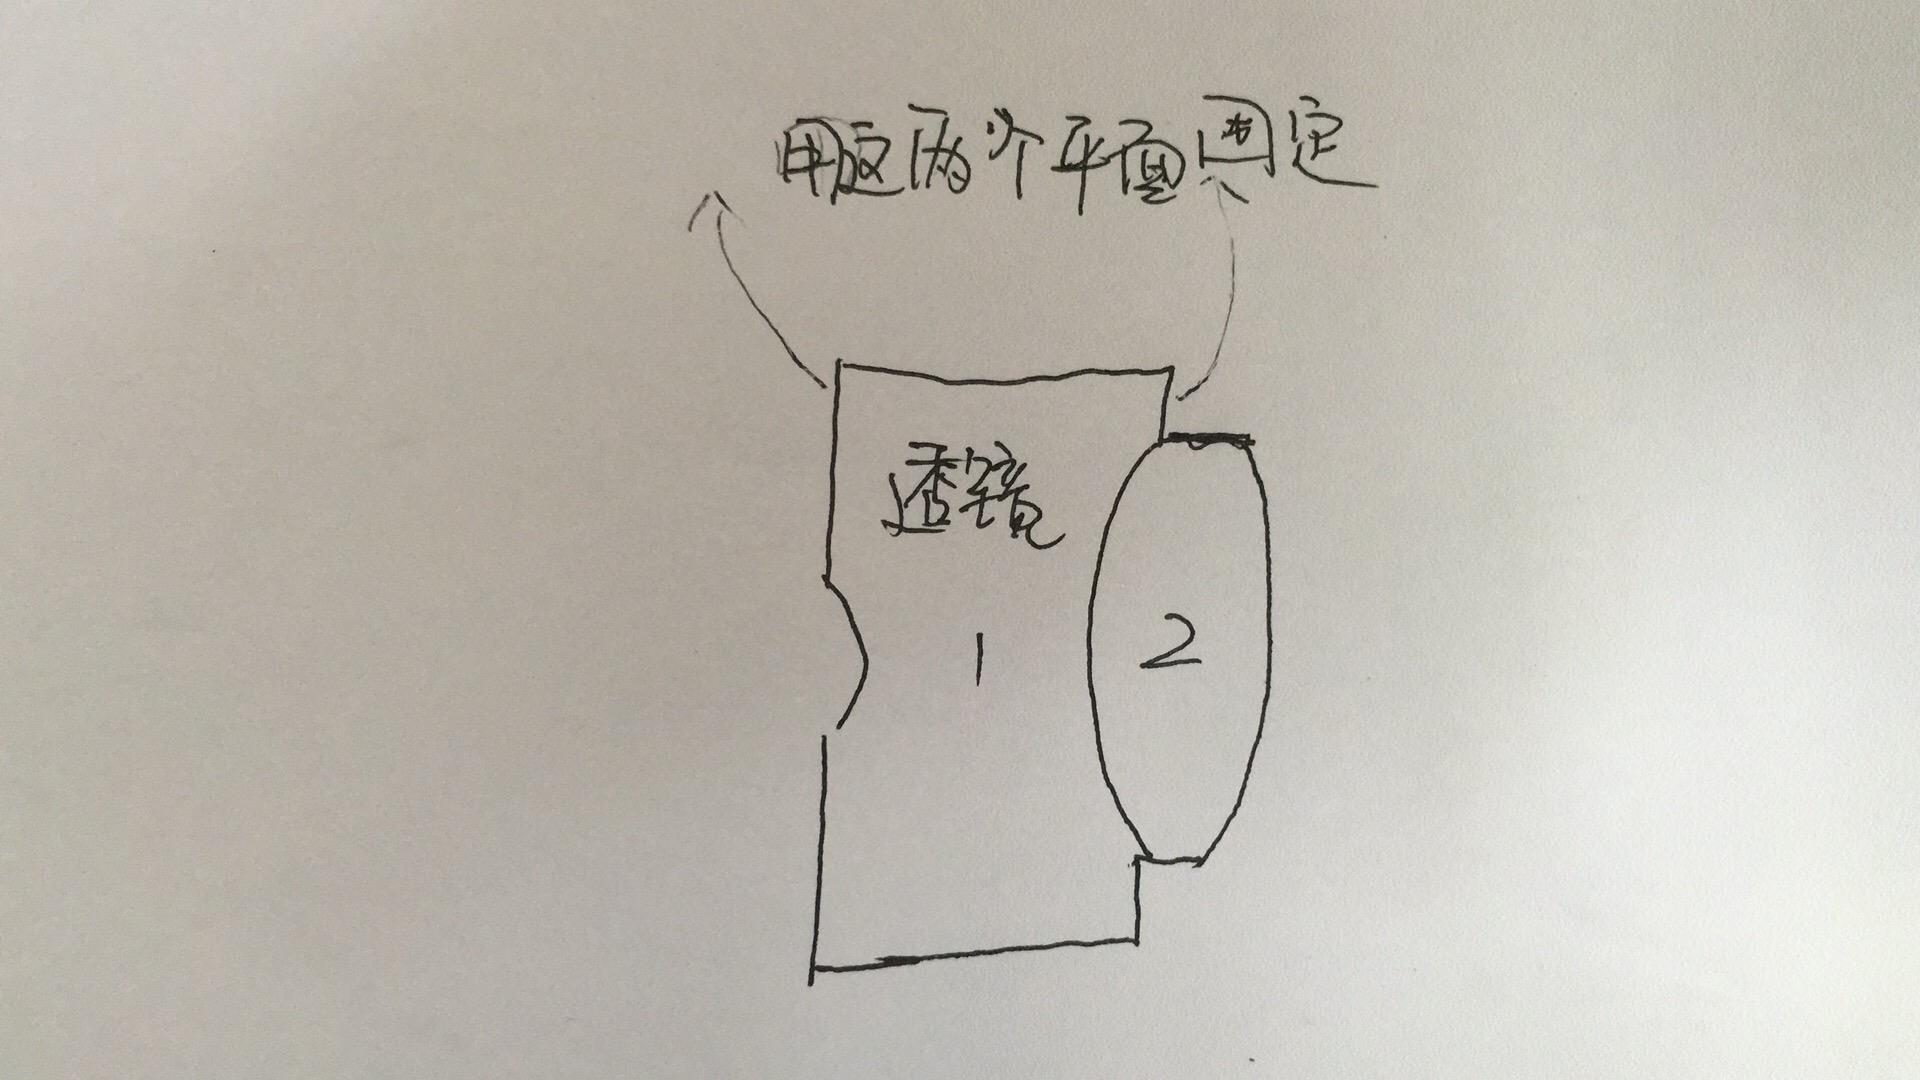 用这两个平面固定
透镜
1
2